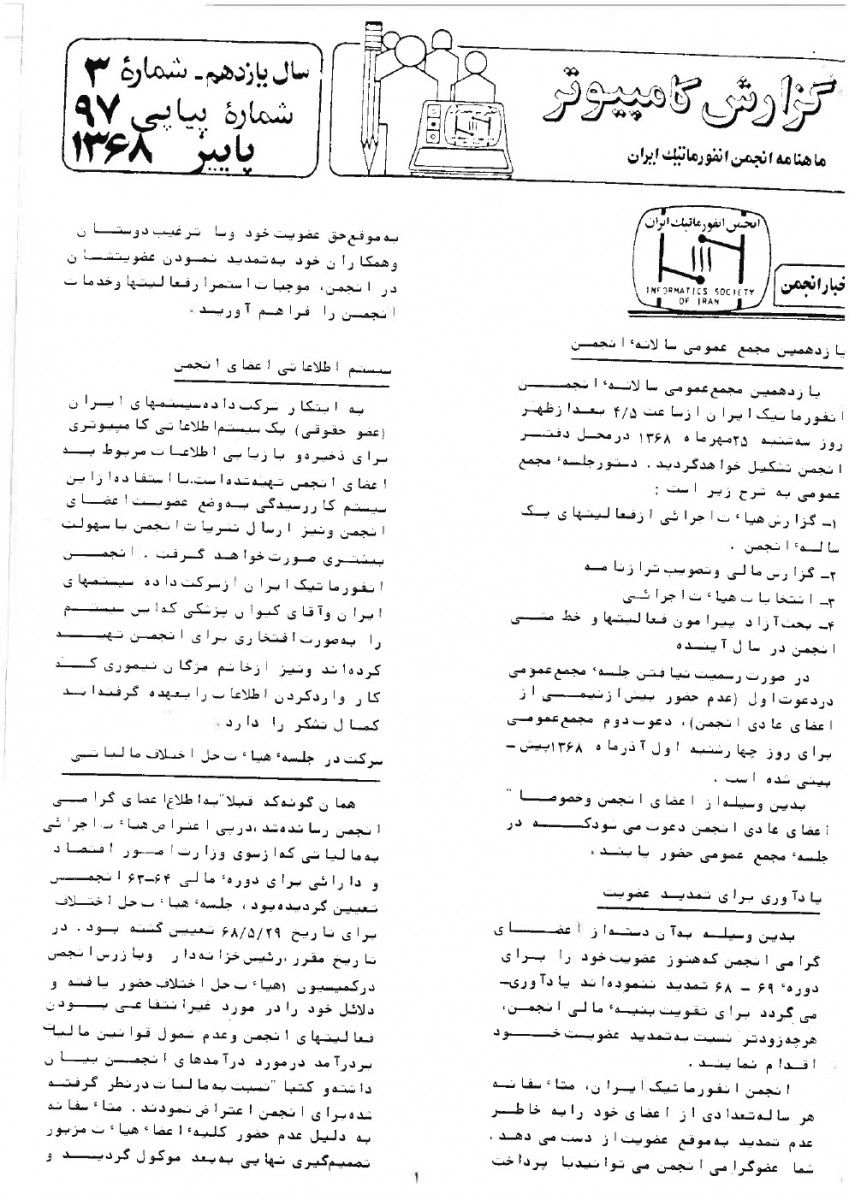 گزارش کامپیوتر
ماهنامه انجمن انفورماتیک ایران
سال یازدهم - شمارهٔ ۳
شمارهٔ پیاپی ۹۷
پاییز ۱۳۶۸
انجمن انفورماتیک ایران
INFORMATICS SOCIETY
OF IRAN
خبار انجمن
یازدهمین مجمع عمومی سالانهٔ انجمن
یازدهمین مجمع عمومی سالانهٔ انجمن
انفورماتیک ایران از ساعت ۴/۵ بعدازظهر
روز سه‌شنبه ۲۵ مهرماه ۱۳۶۸ در محل دفتر
انجمن تشکیل خواهد گردید. دستور جلسهٔ مجمع
عمومی به شرح زیر است :
۱- گزارش هیأت اجرائی از فعالیتهای یک
سالهٔ انجمن .
۲- گزارش مالی و تصویب ترازنامه
۳- انتخابات هیأت اجرائی
۴- بحث آزاد پیرامون فعالیتها و خط مشی
انجمن در سال آینده
در صورت رسمیت نیافتن جلسهٔ مجمع عمومی
در دعوت اول (عدم حضور بیش از نیمی از
اعضای عادی انجمن)، دعوت دوم مجمع عمومی
برای روز چهارشنبه اول آذرماه ۱۳۶۸ پیش-
بینی شده است .
بدین وسیله از اعضای انجمن و خصوصا"
اعضای عادی انجمن دعوت می شود که در
جلسهٔ مجمع عمومی حضور یابند.
یادآوری برای تمدید عضویت
بدین وسیله به آن دسته از اعضای
گرامی انجمن که هنوز عضویت خود را برای
دورهٔ ۶۹ - ۶۸ تمدید ننموده‌اند یادآوری-
می گردد برای تقویت بنیهٔ مالی انجمن،
هرچه زودتر نسبت به تمدید عضویت خود
اقدام نمایند.
انجمن انفورماتیک ایران، متأسفانه
هر ساله تعدادی از اعضای خود را به خاطر
عدم تمدید به موقع عضویت از دست می دهد.
شما عضو گرامی انجمن می توانید با پرداخت
به موقع حق عضویت خود و با ترغیب دوستان
و همکاران خود به تمدید نمودن عضویتشان
در انجمن، موجبات استمرار فعالیتها و خدمات
انجمن را فراهم آورید.
سیستم اطلاعاتی اعضای انجمن
به ابتکار شرکت داده سیستمهای ایران
(عضو حقوقی) یک سیستم اطلاعاتی کامپیوتری
برای ذخیره و بازیابی اطلاعات مربوط به
اعضای انجمن تهیه شده است. با استفاده از این
سیستم کار رسیدگی به وضع عضویت اعضای
انجمن و نیز ارسال نشریات انجمن با سهولت
بیشتری صورت خواهد گرفت . انجمن
انفورماتیک ایران از شرکت داده سیستمهای
ایران و آقای کیوان پزشکی که این سیستم
را به صورت افتخاری برای انجمن تهیه
کرده‌اند و نیز از خانم مژگان تیموری که
کار وارد کردن اطلاعات را بعهده گرفته‌اند
کمال تشکر را دارد.
شرکت در جلسهٔ هیأت حل اختلاف مالیاتی
همان گونه که قبلا" به اطلاع اعضای گرامی
انجمن رسانده شد، در پی اعتراض هیأت اجرائی
به مالیاتی که از سوی وزارت امور اقتصاد
و دارائی برای دورهٔ مالی ۶۴-۶۳ انجمن
تعیین گردیده بود، جلسهٔ هیأت حل اختلاف
برای تاریخ ۶۸/۵/۲۹ تعیین گشته بود. در
تاریخ مقرر، رئیس خزانه‌دار و بازرس انجمن
در کمیسیون (هیأت حل اختلاف حضور یافته و
دلائل خود را در مورد غیرانتفاعی بودن
فعالیتهای انجمن و عدم شمول قوانین مالیات
بر درآمد در مورد درآمدهای انجمن بیان
داشته و کتبا" نسبت به مالیات در نظر گرفته
شده برای انجمن اعتراض نمودند. متأسفانه
به دلیل عدم حضور کلیهٔ اعضای هیأت مزبور
تصمیم‌گیری نهایی به بعد موکول گردید و
۱